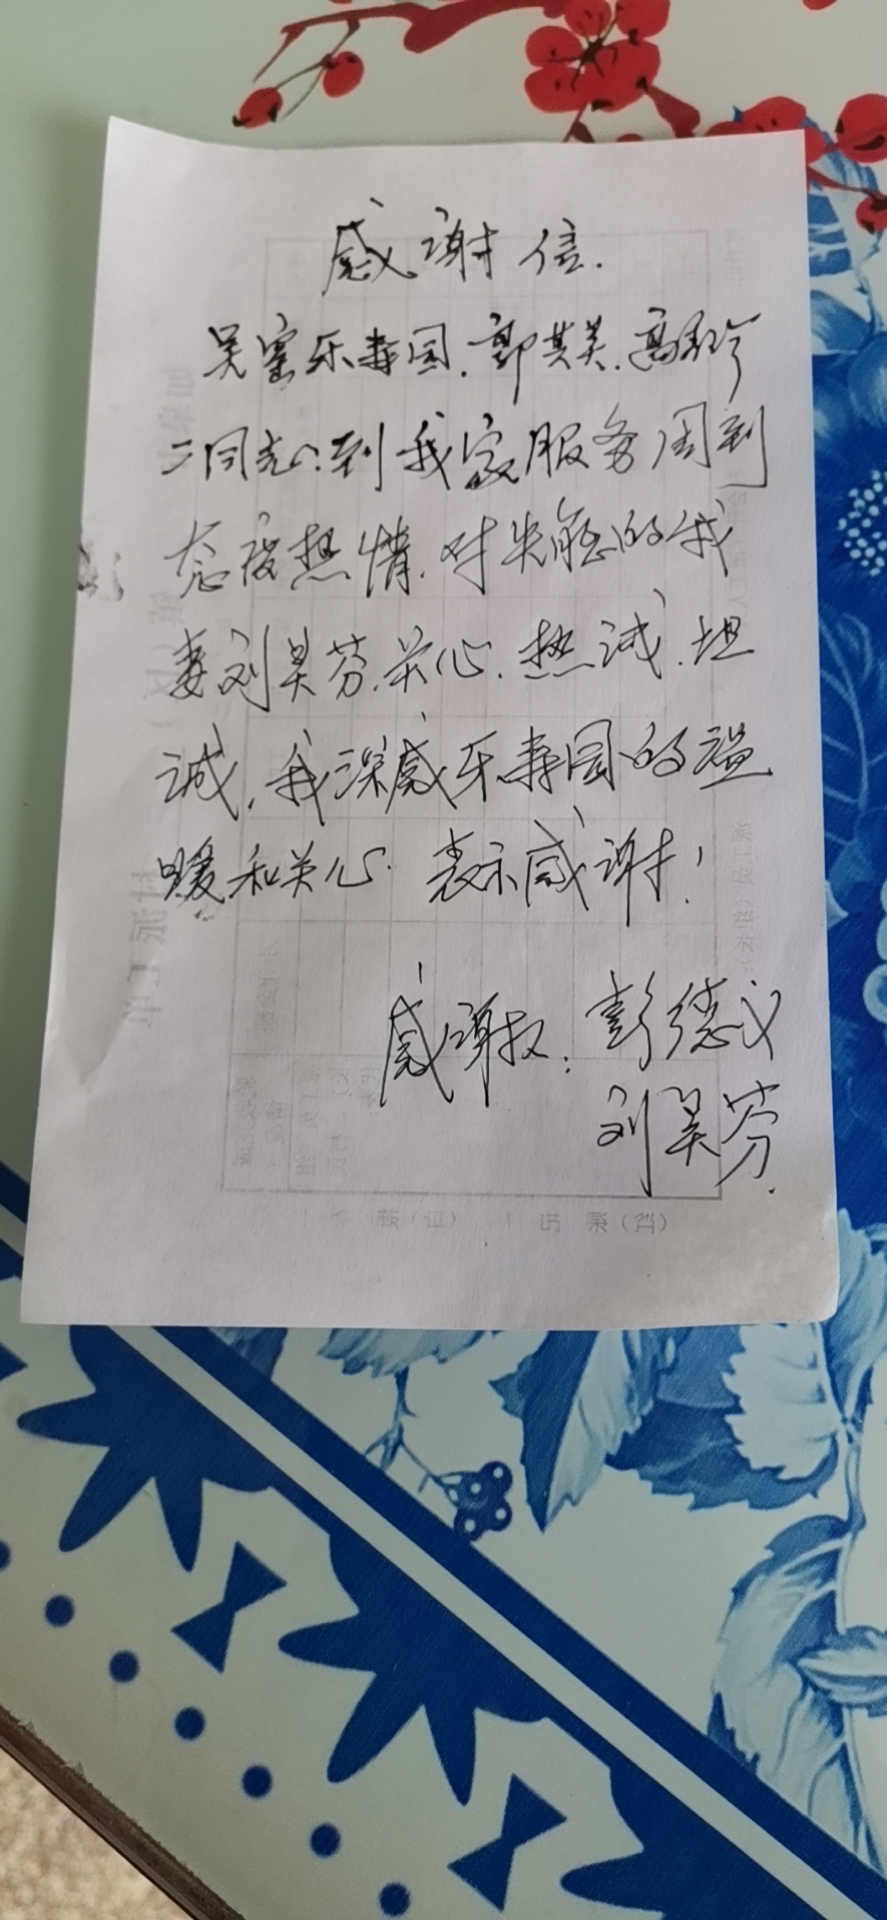 感谢信.
吴窑乐寿园.郭其美.高
二同志.到我家服务周到
态度热情.对失能的我
妻刘吴芬.关心.热诚.坦
诚.我深感乐寿园的温
暖和关心.表示感谢!
感谢人:彭德成
刘吴芬.